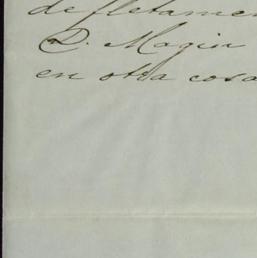 de fletamen
D. Magin
en otra cosa